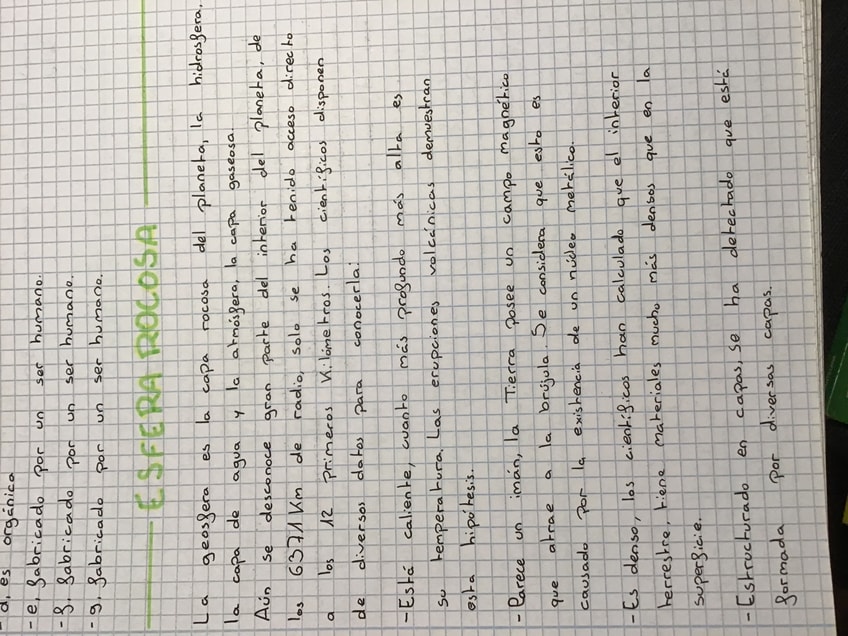 -d, es orgánica
-e, fabricado por un ser humano.
-f, fabricado por un ser humano.
-g, fabricado por un ser humano.
ESFERA ROCOSA
La geosfera es la capa rocosa del planeta, la hidrosfera,
la capa de agua y la atmósfera, la capa gaseosa.
Aún se desconoce gran parte del interior del planeta, de
los 6371 Km de radio, solo se ha tenido acceso directo
a los 12 primeros Kilómetros. Los científicos disponen
de diversos datos para conocerla:
-Está caliente, cuanto más profundo más alta es
su temperatura. Las erupciones volcánicas demuestran
esta hipótesis.
-Parece un imán, la Tierra posee un campo magnético
que atrae a la brújula. Se considera que esto es
causado por la existencia de un núcleo metálico.
-Es denso, los científicos han calculado que el interior
terrestre, tiene materiales mucho más densos que en la
superficie.
-Estructurado en capas, se ha detectado que está
formada por diversas capas.